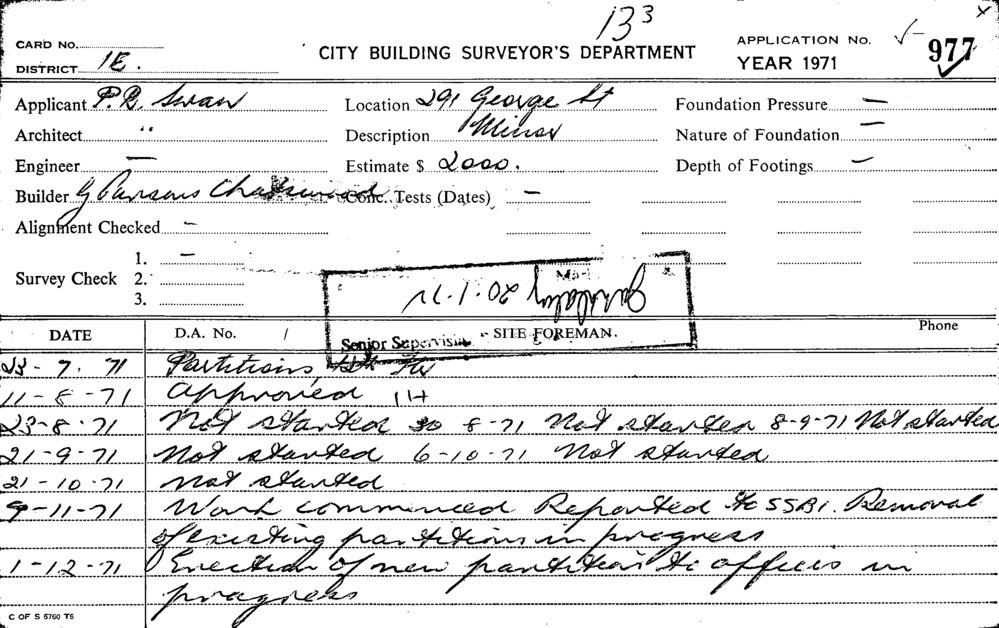 13³
x
CARD No.
CITY BUILDING SURVEYOR'S DEPARTMENT
APPLICATION No. 977
DISTRICT 1E.
YEAR 1971
Applicant P.R. Swan Location 291 George St Foundation Pressure —
Architect " Description Minor Nature of Foundation —
Engineer — Estimate $ 2000. Depth of Footings —
Builder G Parsons Chatswood Conc. Tests (Dates) —
Alignment Checked —
1. —
Survey Check 2.
3.
20.1.72
Senior Supervisin - SITE FOREMAN.
DATE D.A. No. / Phone
23-7.71 Partitions, Flr
11-8-71 Approved 1H
23-8-71 Not started 30 8-71 Not started 8-9-71 Not started
21-9-71 Not started 6-10-71 Not started
21-10-71 Not started
9-11-71 Work commenced Reported to SSBI. Removal
of existing partitions in progress
1-12-71 Erection of new partitions to offices in
progress
C OF S 6760 T6